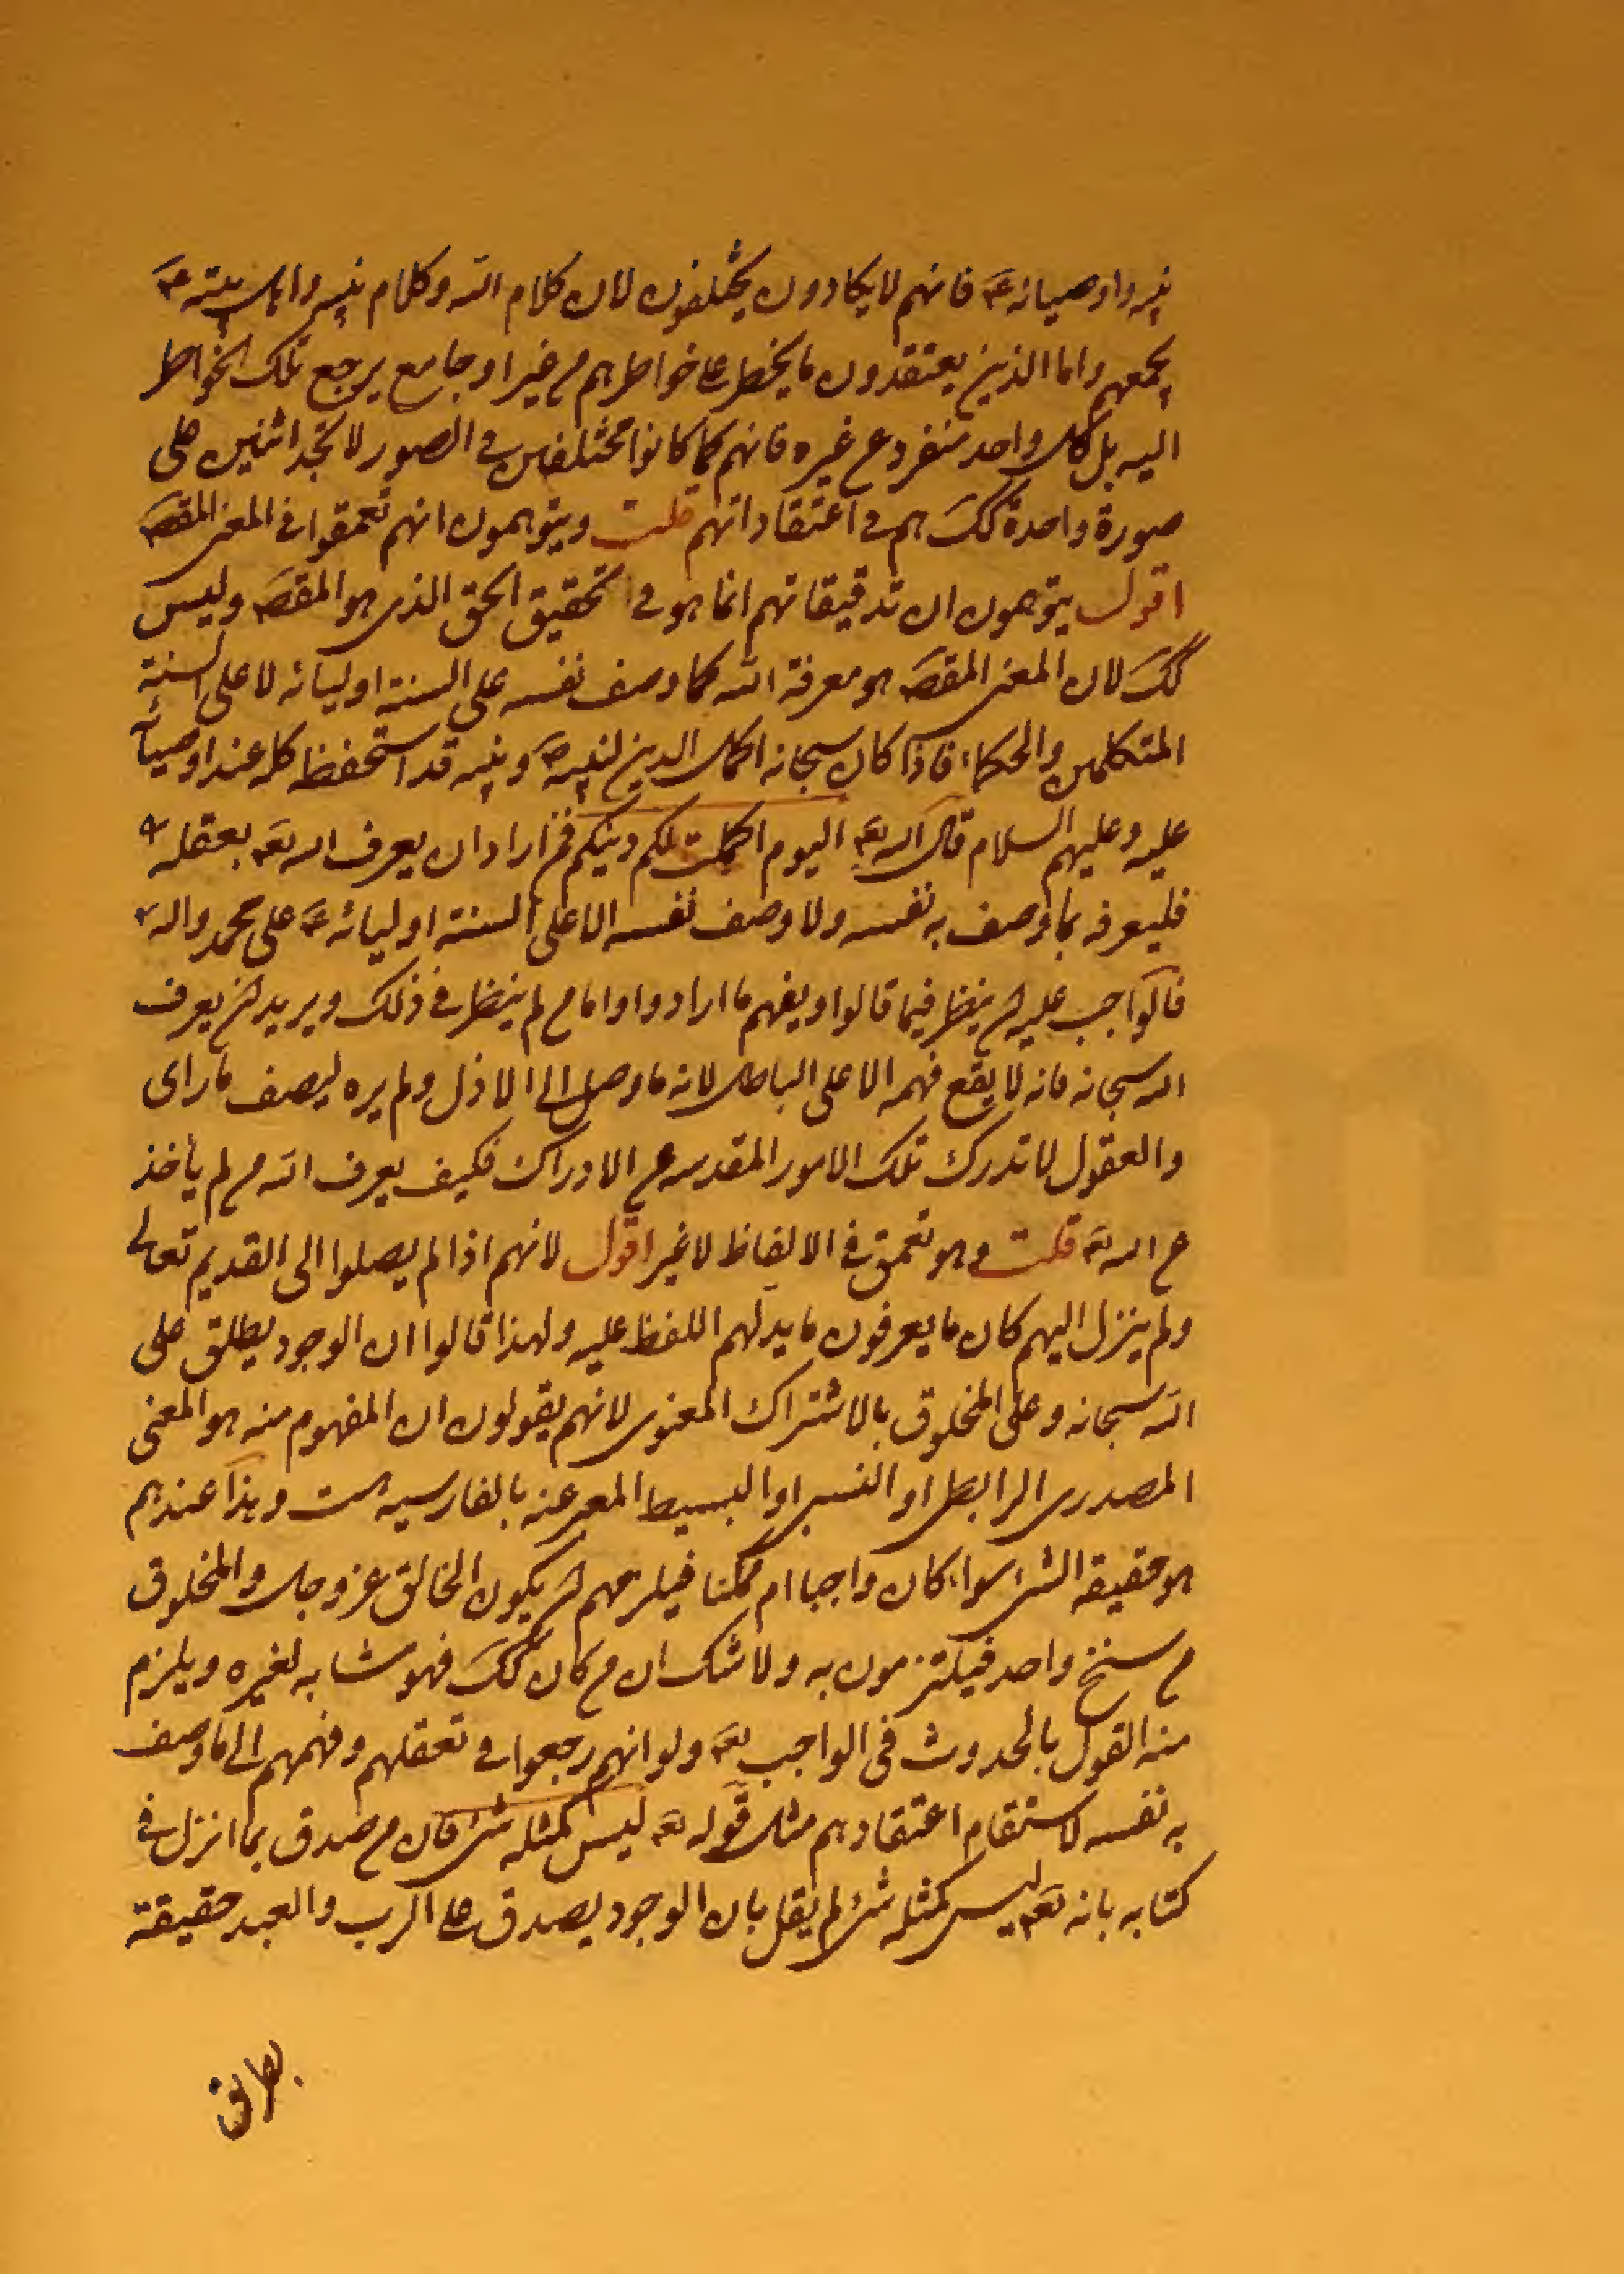 نبيه واوصيائه ع‍ فانهم لا يكادون يختلفون لان كلام الله وكلام نبيه واهل بيته ع‍
يجمعهم واما الذين يعتقدون ما يخطر على خواطرهم من غير اد جامع يرجع تلك الخواطر
اليه بل كل واحد منفرد عن غيره فانهم كما كانوا مختلفين في الصور لا تجد اثنين على
صورة واحدة كك هم في اعتقاداتهم قلت ويتوهمون انهم تعمقوا في المعنى المقص
اقول يتوهمون ان تدقيقاتهم انما هو في تحقيق الحق الذي هو المقص وليس
كك لان المعنى المقص هو معرفة الله كما وصف نفسه على السنة اوليائه لا على السنة
المتكلمين والحكماء فاذا كان سبحانه اكمل الدين لنبيه ص ونبيه قد استحفظ كله عند اوصيائه
عليه وعليهم السلام قال الله تع اليوم اكملت لكم دينكم فمن اراد ان يعرف الله تع بعقله
فليعرفه بما وصف به نفسه ولا وصف نفسه الا على السنة اوليائه ع‍ على محمد واله
فالواجب عليه ان ينظر فيما قالوا ويفهم ما ارادوا واما من لم ينظر في ذلك ويريد ان يعرف
الله سبحانه فانه لا يقع فهمه الا على الباطل لانه ما وصل الى الازل ولم يره ليصف ما راى
والعقول لا تدرك تلك الامور المقدسه عن الادراك فكيف يعرف الله من لم يأخذ
عن الله تع قلت وهو تعمق في الالفاظ لا غير اقول لانهم اذا لم يصلوا الى القديم تعالى
ولم ينزل اليهم كان ما يعرفون ما يدلهم اللفظ عليه ولهذا قالوا ان الوجود يطلق على
الله سبحانه وعلى المخلوق بالاشتراك المعنوى لانهم يقولون ان المفهوم منه هو المعنى
المصدرى الرابطى او النسبى او البسيط المعبر عنه بالفارسيه هست وهذا عندهم
هو حقيقة الشئ سواء كان واجبا ام ممكنا فيلزمهم ان يكون الخالق عز وجل والمخلوق
من سنخ واحد فيلتزمون به ولا شك ان من كان كك فهو مشابه لغيره ويلزم
منه القول بالحدوث في الواجب تع ولو انهم رجعوا في تعقلهم وفهمهم الى ما وصف
به نفسه لاستقام اعتقادهم مثل قوله تع ليس كمثله شئ فان من صدق بما انزل في
كتابه بانه تع ليس كمثله شئ لم يقل بان الوجود يصدق على الرب والعبد حقيقة